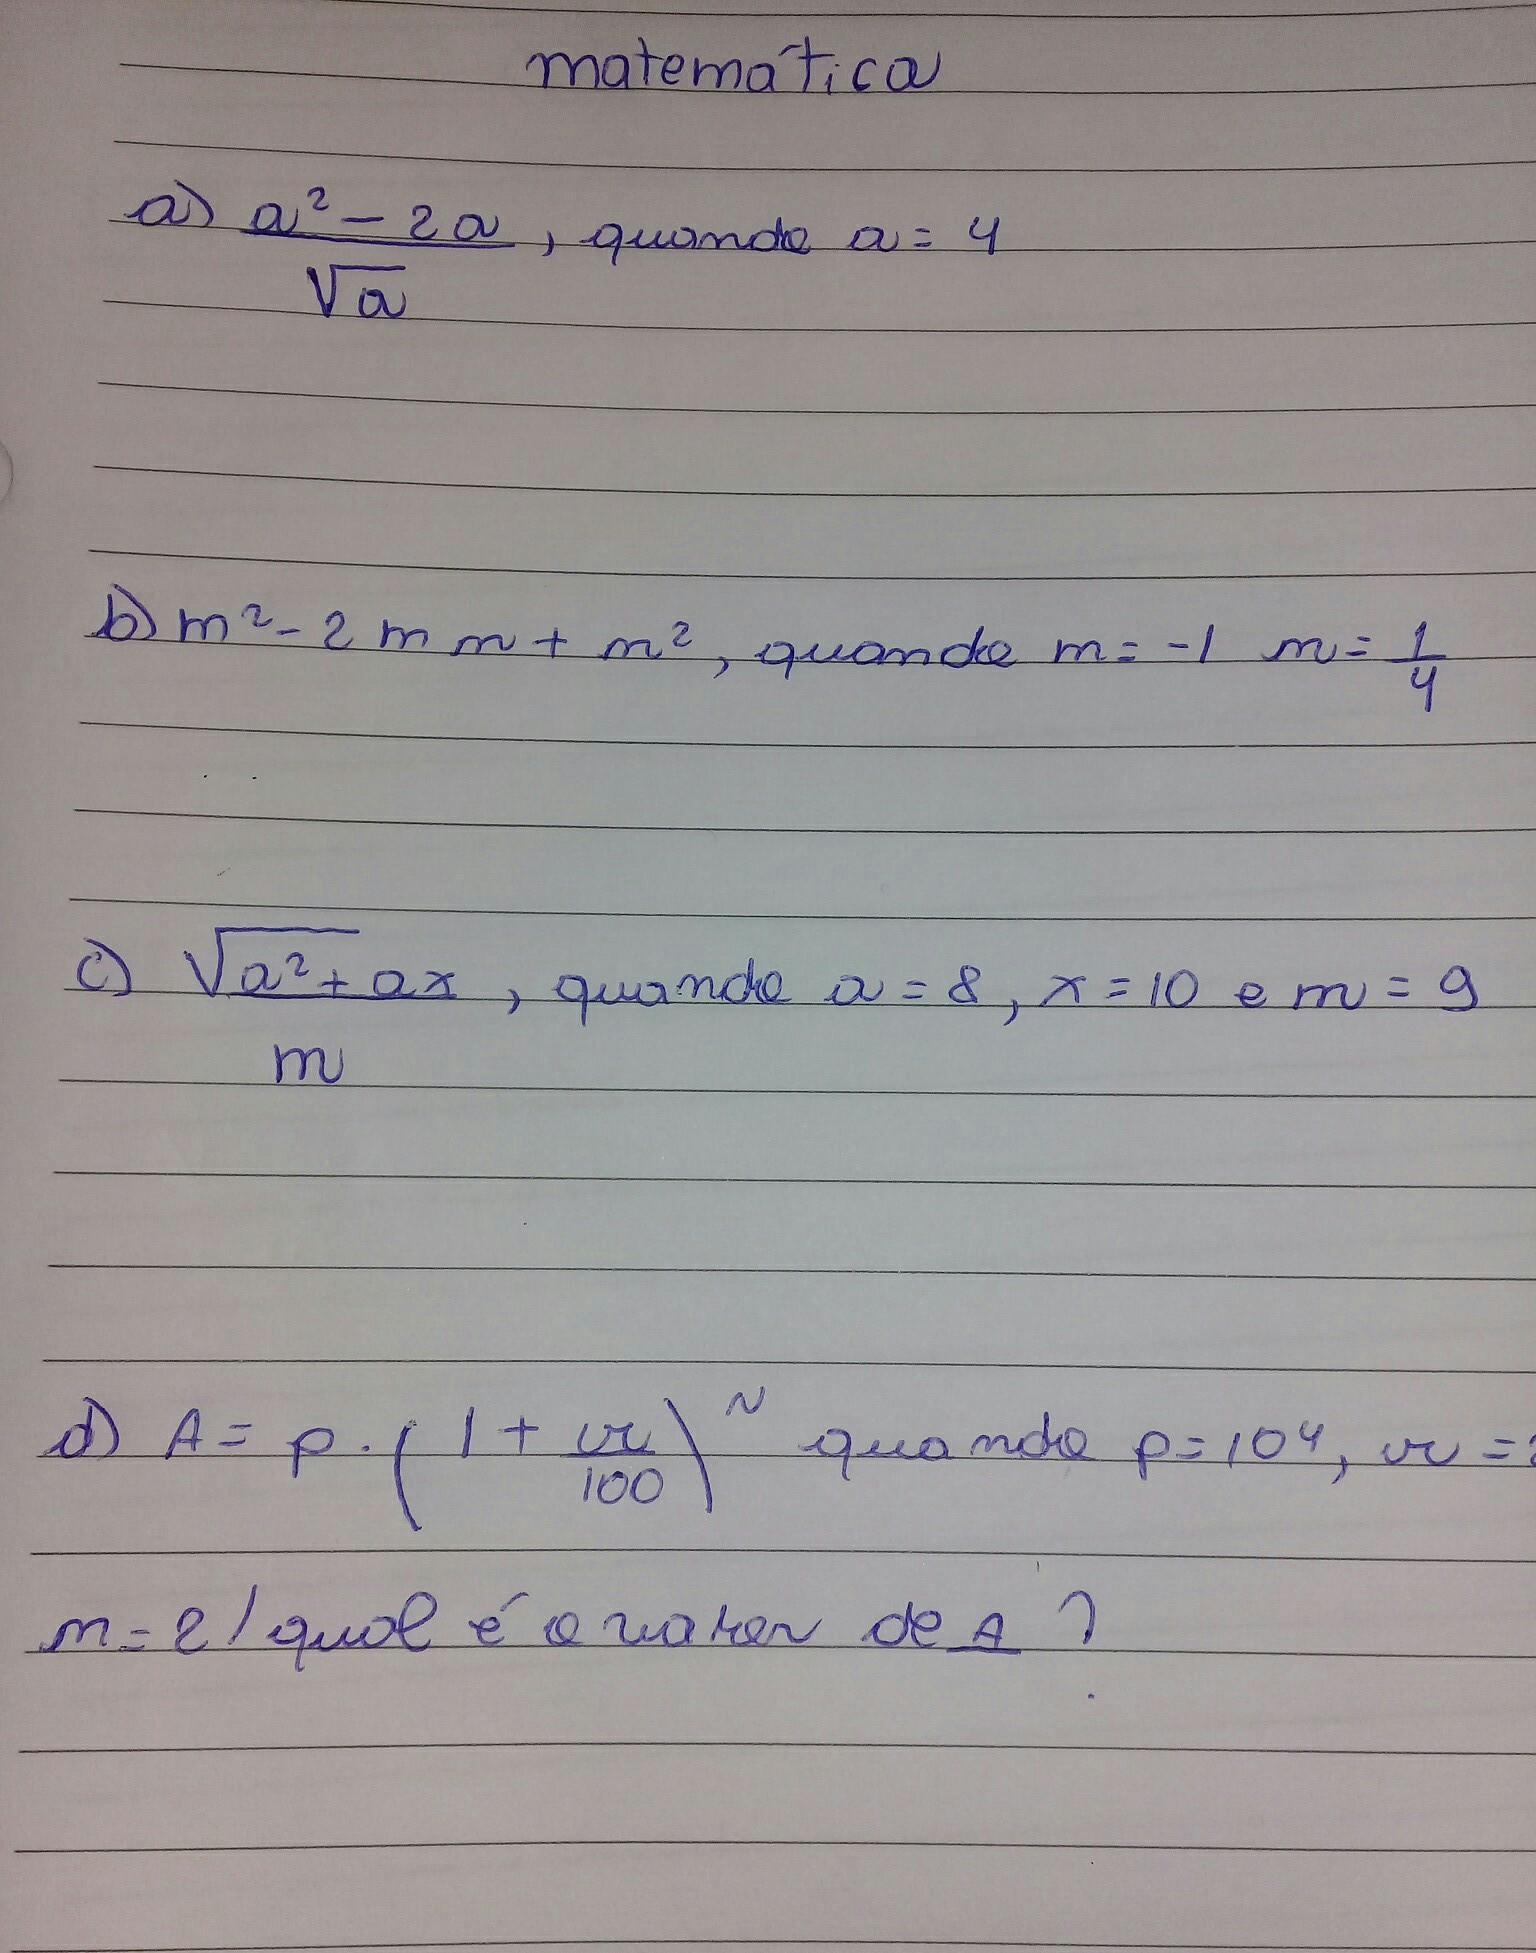 matemática
a) a² - 2a / √a , quando a = 4
b) m² - 2 m n + n² , quando m = -1 n = 1/4
c) √a² + ax / m , quando a = 8, x = 10 e m = 9
d) A = p . ( 1 + r/100 )ᴺ quando p = 10⁴, r =
n = 2 / qual é o valor de A ?